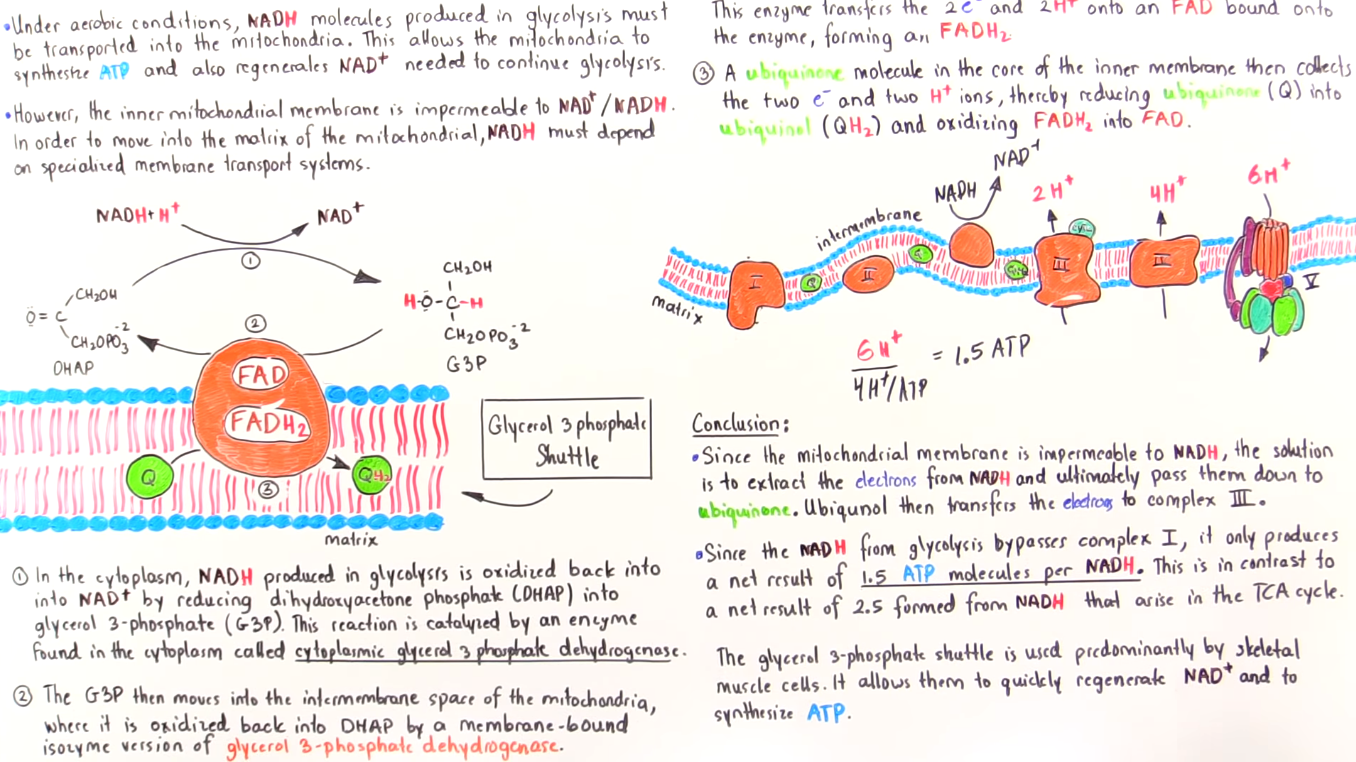 •Under aerobic conditions, NADH molecules produced in glycolysis must
be transported into the mitochondria. This allows the mitochondria to
synthesize ATP and also regenerates NAD+ needed to continue glycolysis.
•However, the inner mitochondrial membrane is impermeable to NAD+/NADH.
In order to move into the matrix of the mitochondrial, NADH must depend
on specialized membrane transport systems.
NADH + H+
NAD+
①
CH2OH
O = C
CH2OPO3-2
DHAP
CH2OH
H-O-C-H
CH2OPO3-2
G3P
②
FAD
FADH2
Q
QH2
③
matrix
Glycerol 3 phosphate
Shuttle
① In the cytoplasm, NADH produced in glycolysis is oxidized back into
into NAD+ by reducing dihydroxyacetone phosphate (DHAP) into
glycerol 3-phosphate (G3P). This reaction is catalyzed by an enzyme
found in the cytoplasm called cytoplasmic glycerol 3 phosphate dehydrogenase.
② The G3P then moves into the intermembrane space of the mitochondria,
where it is oxidized back into DHAP by a membrane-bound
isozyme version of glycerol 3-phosphate dehydrogenase.
This enzyme transfers the 2e- and 2H+ onto an FAD bound onto
the enzyme, forming an FADH2
③ A ubiquinone molecule in the core of the inner membrane then collects
the two e- and two H+ ions, thereby reducing ubiquinone (Q) into
ubiquinol (QH2) and oxidizing FADH2 into FAD.
NAD+
NADH
2H+
4H+
6H+
intermembrane
matrix
I
Q
II
Q
III
V
6H+
4H+/ATP
= 1.5 ATP
Conclusion:
•Since the mitochondrial membrane is impermeable to NADH, the solution
is to extract the electrons from NADH and ultimately pass them down to
ubiquinone. Ubiqunol then transfers the electrons to complex III.
•Since the NADH from glycolysis bypasses complex I, it only produces
a net result of 1.5 ATP molecules per NADH. This is in contrast to
a net result of 2.5 formed from NADH that arise in the TCA cycle.
The glycerol 3-phosphate shuttle is used predominantly by skeletal
muscle cells. It allows them to quickly regenerate NAD+ and to
synthesize ATP.